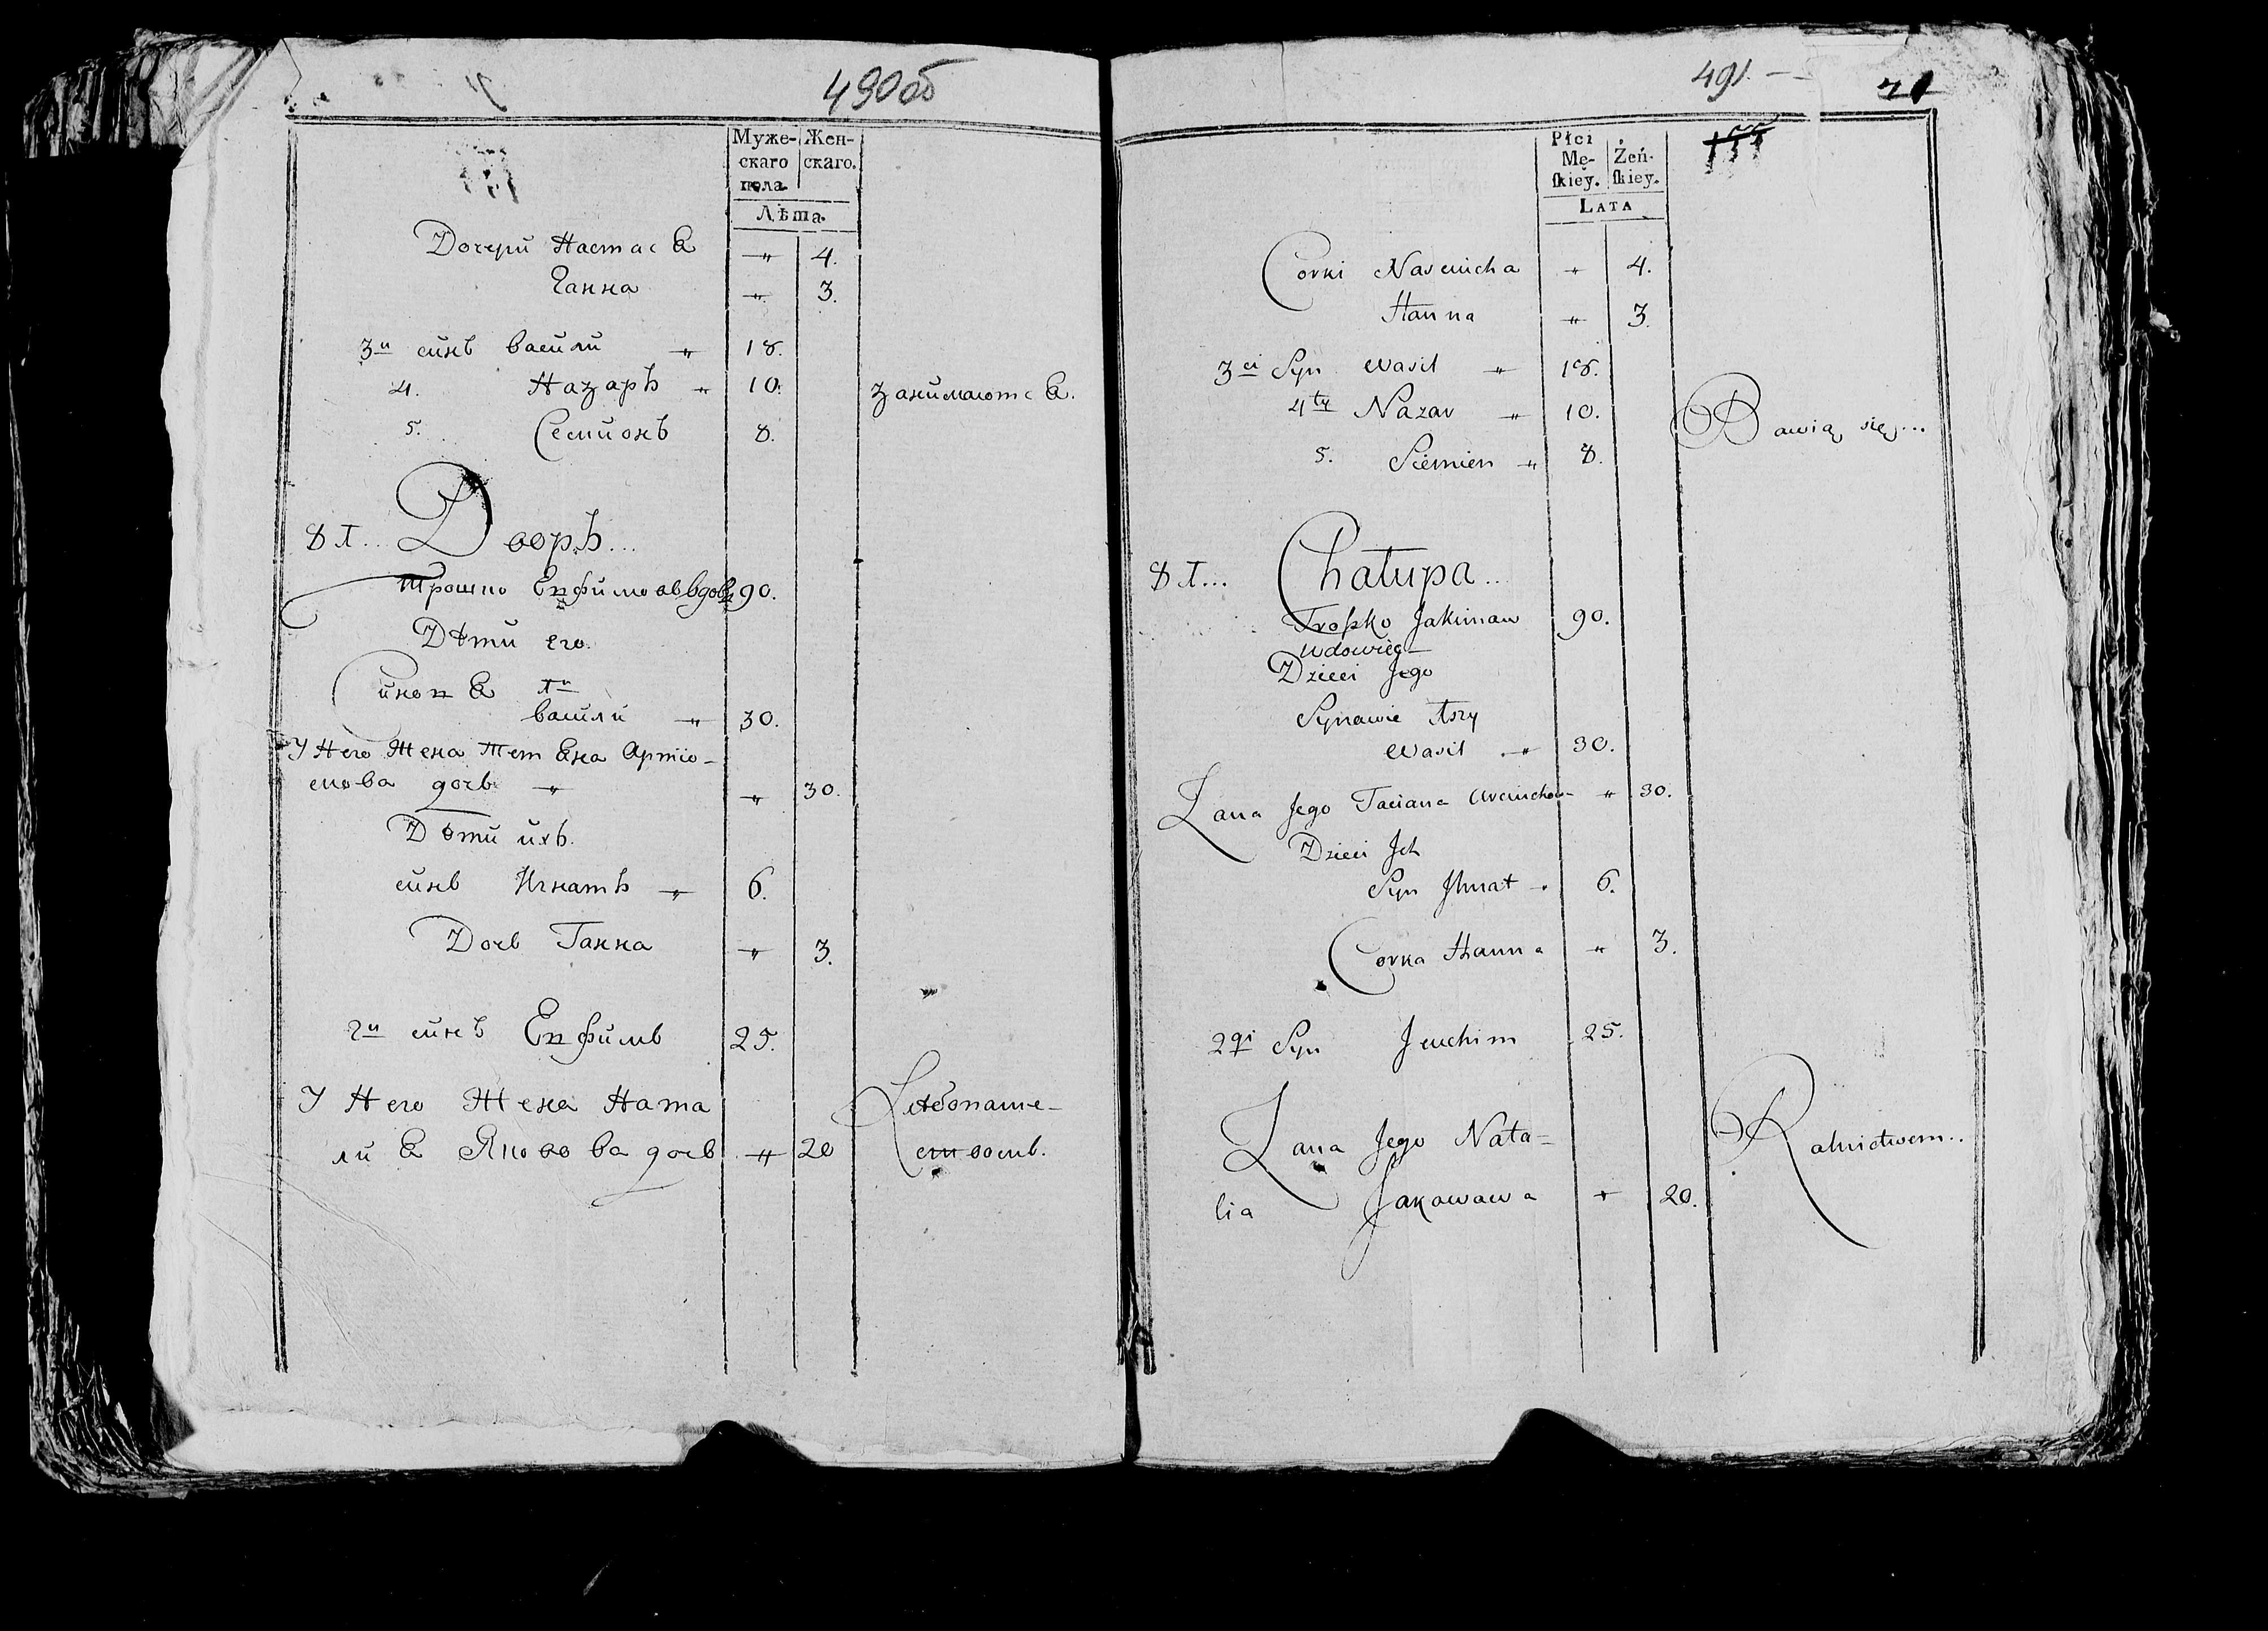 490об
Муже- Жен-
скаго скаго.
пола
Лѣта
Дочери Настася " 4.
Ганна " 3.
3й синъ васили " 18.
4. Назаръ " 10.
занимаются.
5. Семионъ 8.
81... Дворъ...
Трошко Екфимов вдовец 90.
Дѣти его.
Синовя 1й
васили " 30.
У Него Жена Тетяна Артю-
мова дочь " " 30.
Дѣти ихъ.
синъ Игнатъ " 6.
Дочь Ганна " 3.
2й синъ Екфимъ 25.
У Него Жена Ната
лия Яковова дочь " 20
Хлебопаше-
ствомъ.
491
71
Płci
Mę- Żeń-
skiey. skiey.
LATA
Corki Nasciucha " 4.
Hanna " 3.
3ci Syn wasil " 18.
4ty Nazar " 10.
Bawią się...
5. Siemien " 8.
81... Chałupa...
Troszko Jakimaw 90.
wdowiec
Dzieci Jego
Synawie 1szy
wasil " 30.
Żana Jego Taciana " 30.
Dzieci Ich
Syn Ihnat " 6.
Corka Hanna " 3.
2gi Syn Jeuchim 25.
Żana Jego Nata=
lia Jakawawa " 20.
Ralnictwem..